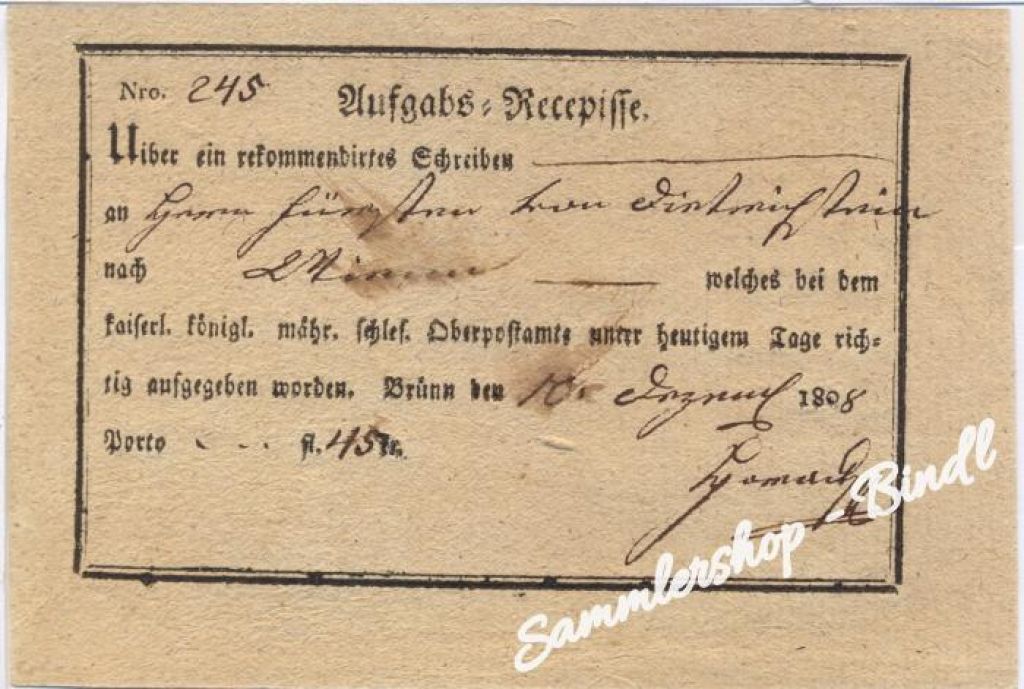 Nro. 245 Aufgabs-Recepisse.
Uiber ein rekommendirtes Schreiben
an Herrn Fürsten von Dietrichstein
nach Wienn welches bei dem
kaiserl. königl. mähr. schles. Oberpostamte unter heutigem Tage rich-
tig aufgegeben worden. Brünn den 10. Dezemb 1808
Porto - - - fl. 45 kr.
Sammlershop - Bindl